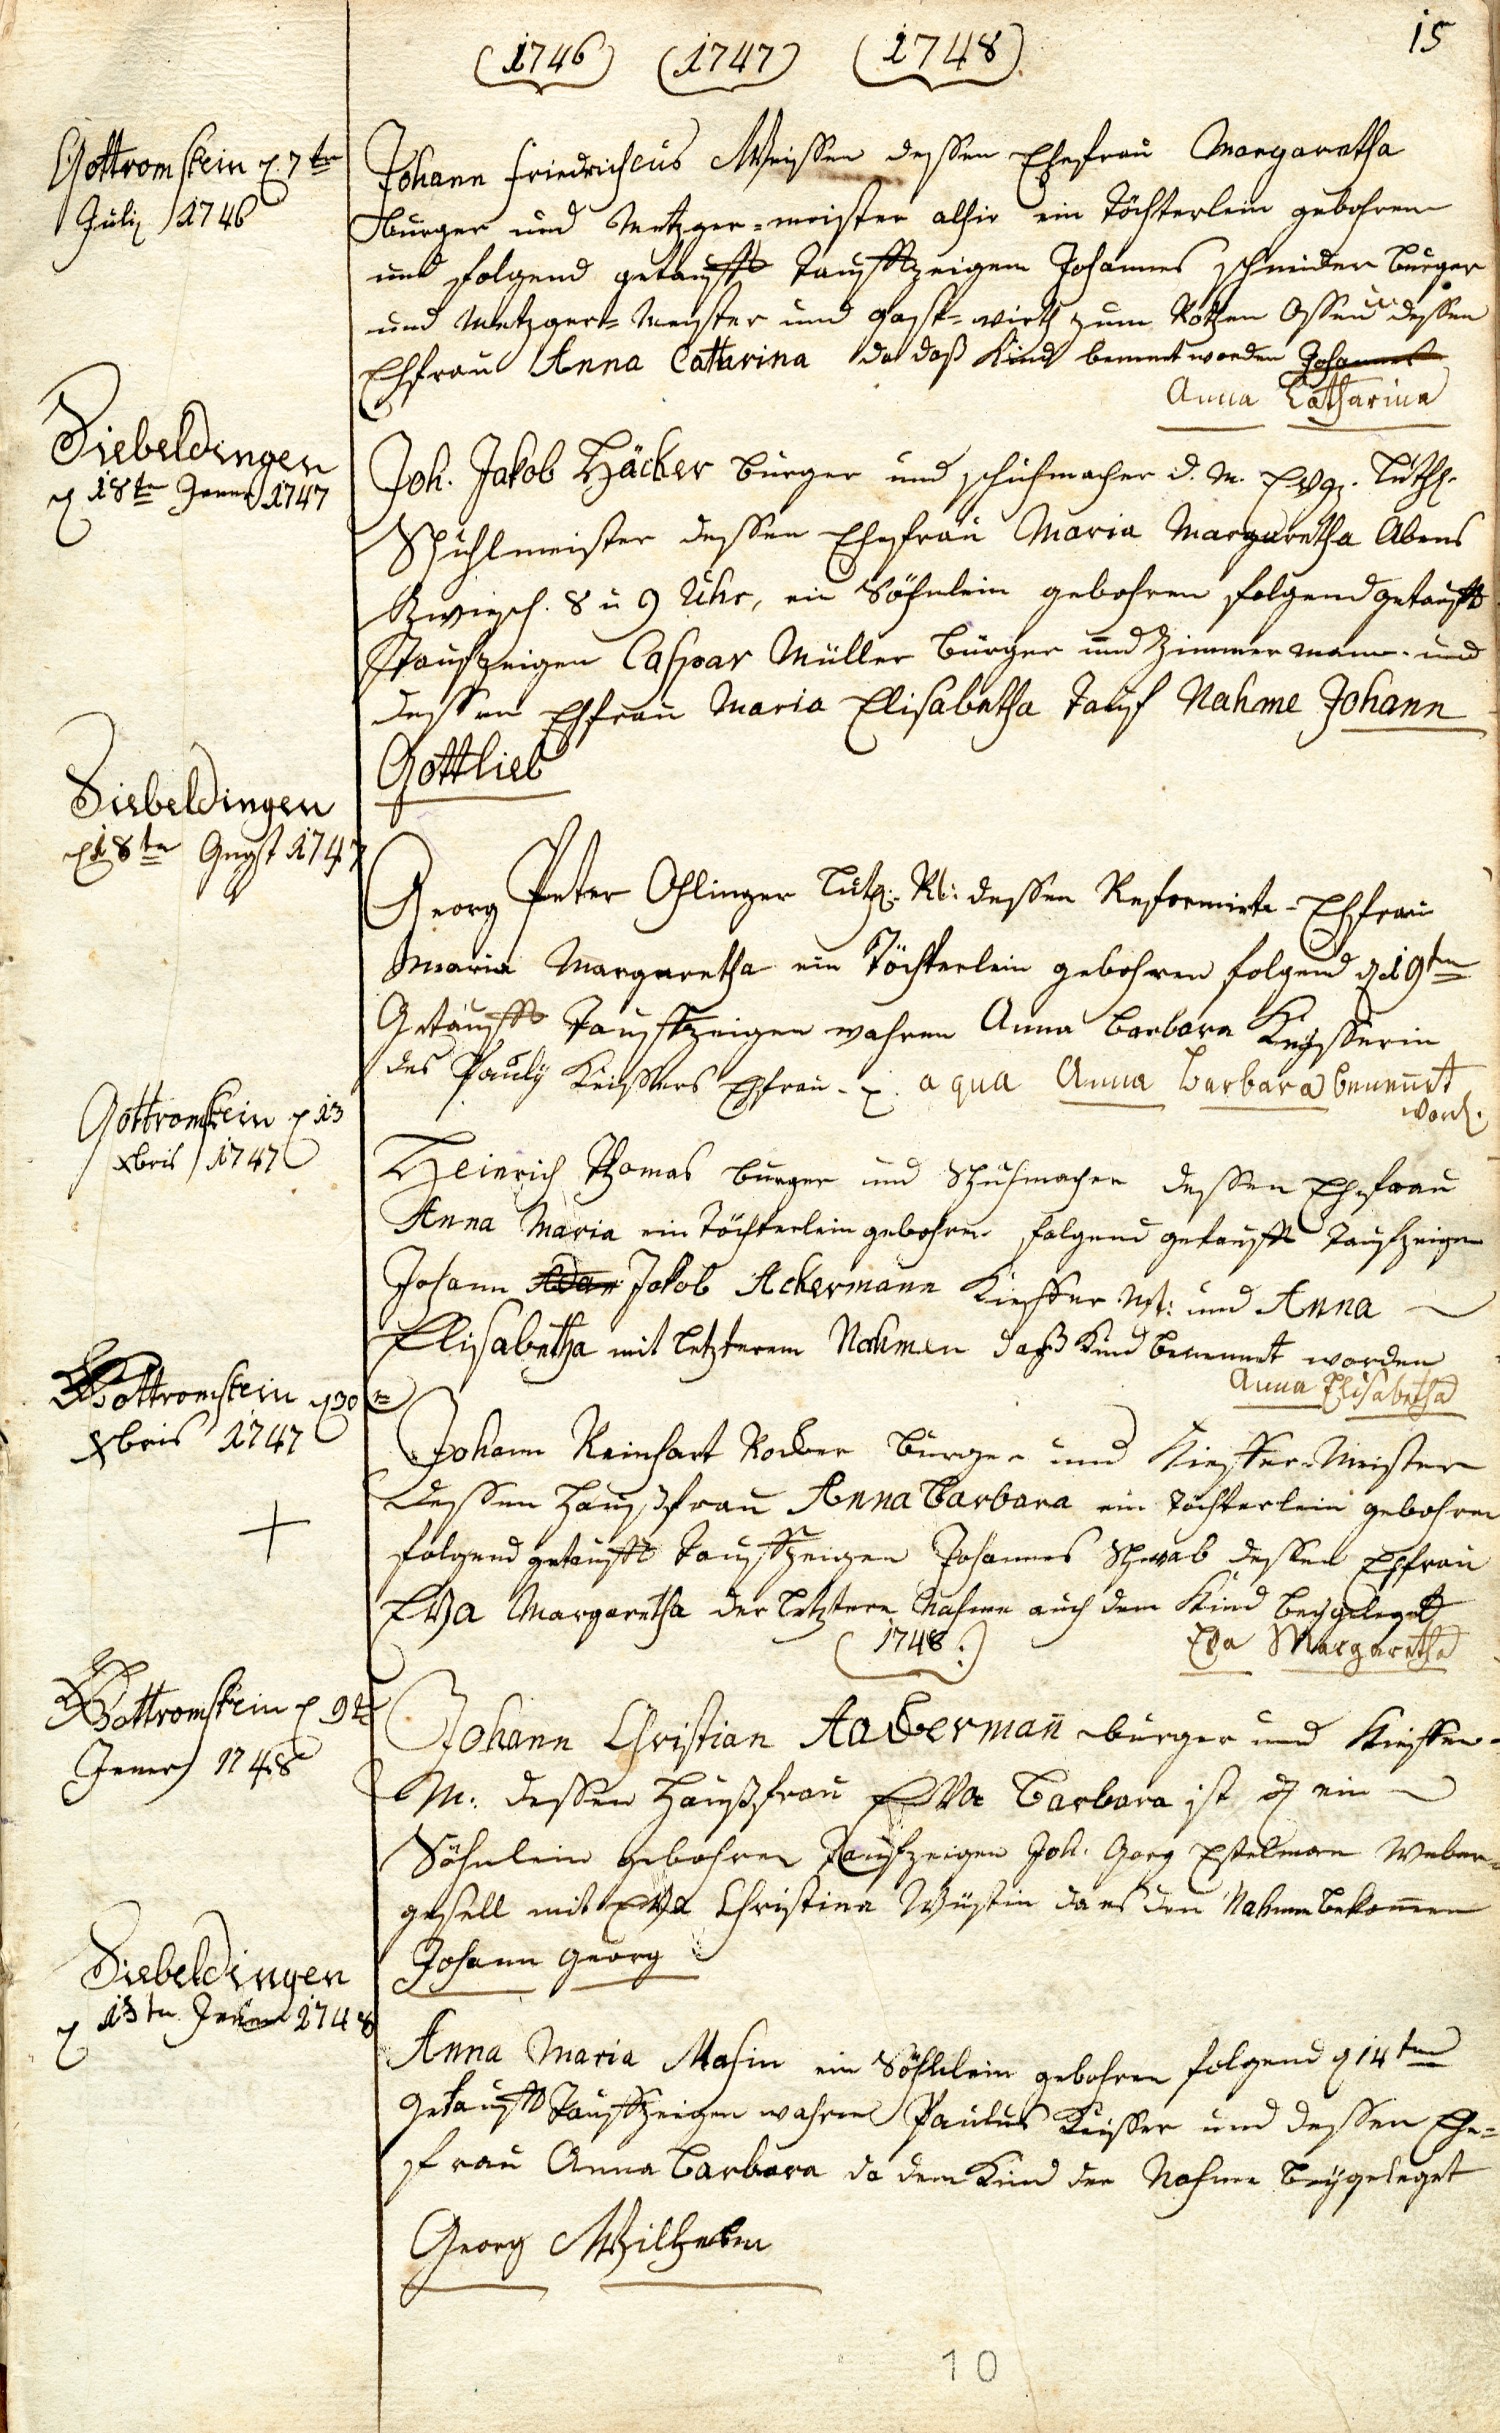 15
(1746) (1747) (1748)
Gottromstein d. 7ten
Julij 1746
Johann Friedrichcus Weissen dessen Ehefrau Margaretha
Burger und Metzger=meister alhir ein Töchterlein gebohren
und folgend getaufft Tauffzeigen Johannes schneider burger
und Metzger=Meister und gast=wirth zum Rothen Ossen dessen
Ehfrau Anna Catharina da daß Kind benent worden Johannes
Anna Catharina
Siebeldingen
d 18ten Jener 1747
Joh. Jakob Häcker burger und schuhmacher d. M. Evg. Luth.
Schuhlmeister dessen Ehefrau Maria Margaretha Abens
Zwiesch. 8 u 9 Uhr, ein Söhnlein gebohren folgend getaufft
Taufzeigen Caspar Müller Burger und Zimmermann und
dessen Ehfrau Maria Elisabetha Tauf Nahme Johann
Gottlieb
Siebeldingen
d 18ten Augst 1747
Georg Peter Ohlinger Luth. Rl: dessen Reformirte=Ehfrau
Maria Margaretha ein Töchterlein gebohren folgend d. 19ten
Getaufft Tauffzeigen wahren Anna Barbara Keysserin
des Pauly Keissers Ehfrau aqua Anna Barbara benennet
word.
Gottromstein d 13
xbris 1747
Heinrich Thomas burger und Schuhmacher dessen Ehefrau
Anna Maria ein Töchterlein gebohren folgend getaufft Taufzeigen
Johann Adam Jakob Ackermann Kieffer Mst: und Anna
Elisabetha mit letzterem Nahmen daß Kind benennet worden
Anna Elisabetha
Gottromstein d 30ten
xbris 1747
Johann Reinhart Rocker burger und Kieffer=Meister
dessen Haußfrau Anna Barbara ein Töchterlein gebohren
folgend getaufft Tauffzeigen Johannes Schwab dessen Ehfrau
Eva Margaretha der letztere Nahme auch dem Kind beygeleget
(1748.)
Eva Margaretha
Gottromstein d 9te
Jener 1748
Johann Christian Aackermann burger und Kieffer=
M. dessen Haußfrau Eva Barbara ist d ein
Söhnlein gebohren Taufzeigen Joh. Georg Estelman Weber=
gesell mit Eva Christina Wüstin da es den Nahmen bekommen
Johann Georg
Siebeldingen
d 13ten Jener 1748
Anna Maria Masin ein Söhnlein gebohren folgend d 14ten
getaufft Tauffzeigen wahren Paulus Keisser und dessen Ehe=
frau Anna Barbara da dem Kind der Nahme beygeleget
Georg Wilhelm
10